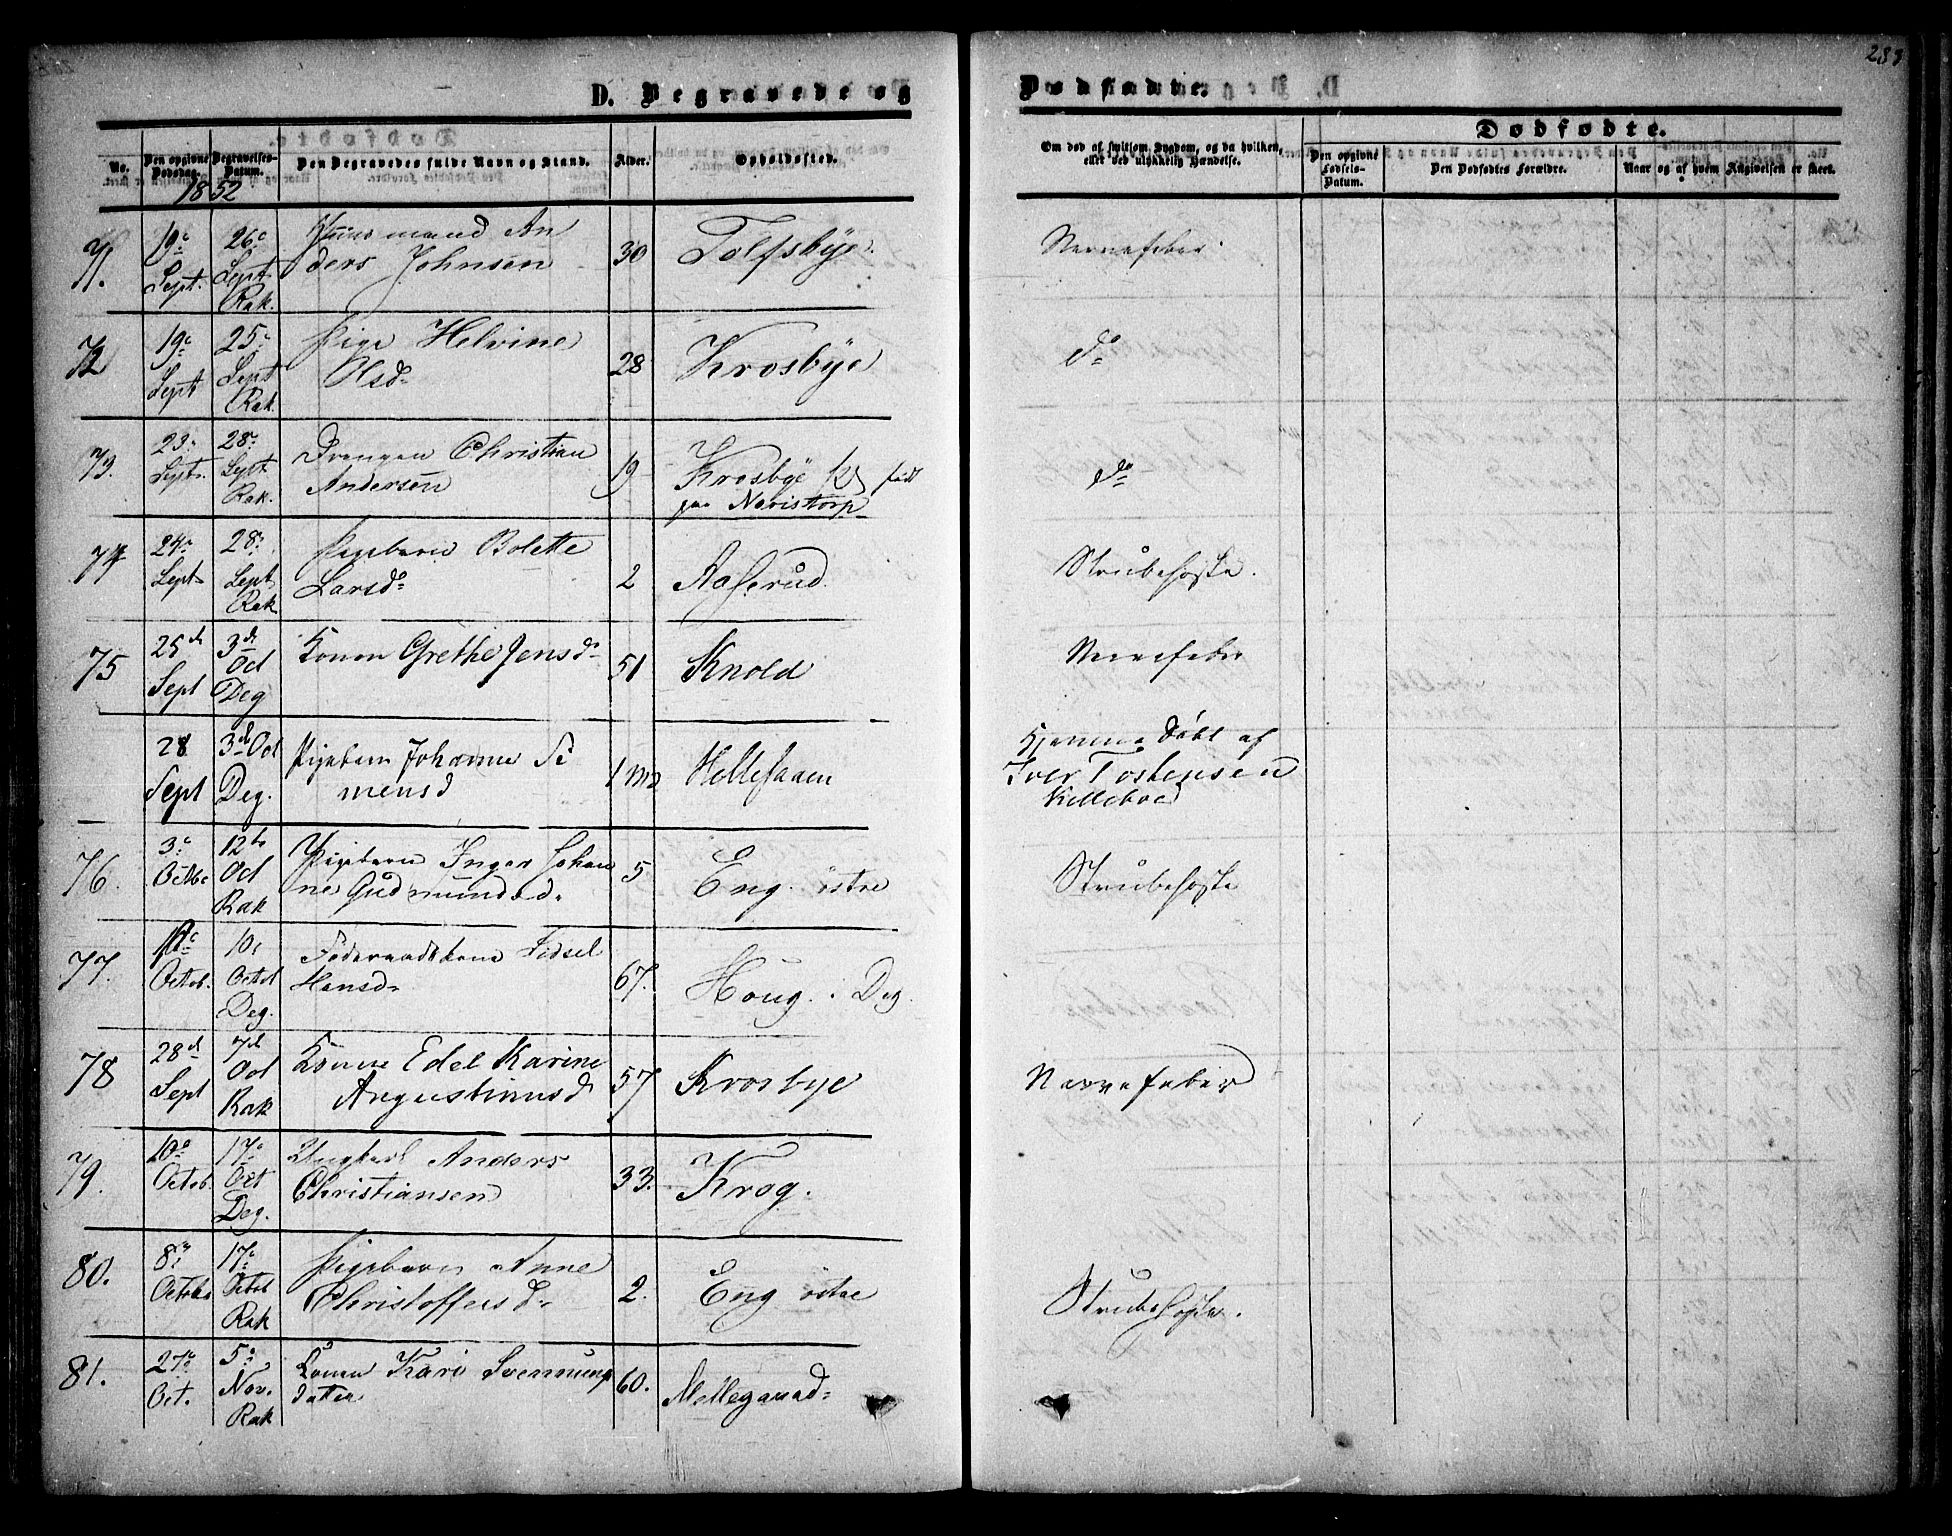 283
D. Begravede og Dødfødte.
No.
Den opgivne Dødsdag.
Begravelses-Datum.
Den Begravedes fulde Navn og Stand.
Alder.
Opholdssted.
Om død af smitsom Sygdom, og da hvilken,
eller ved ulykkelig Hændelse.
Dødfødte.
Den opgivne Fødsels-Datum.
Den Dødfødtes Forældre.
Naar og af hvem Angivelsen er skeet.
1852
71. 19e Sept. 26e Sept Rak. Huusmand An
ders Johnsen 30 Tolfsbye. Nervefeber.
72 19e Sept 25e Sept Rak. Pige Helvine
Olsd. 28 Krosbye do
73. 23. Sept. 28. Sept. Rak. Drengen Christian
Andersen 19 Krosbye født
paa Navistorp do
74 24. Sept 28. Sept Rak Pigebarn Bolette
Larsd. 2 Aaserud. Strubehoste.
75 25d Sept 3d Oct Deg Konen Grethe Jensd. 51 Knold Nervefeber
28 Sept 3d Oct Deg. Pigebarn Johanne Si
mensd 1 md Hellesaaen Hjemmedøbt af
Iver Tostensen
Killeboe
76. 3e Octbr 12te Oct Rak Pigebarn Inger Johan
ne Gudmundsd. 5 Eng. østre Strubehoste
77. Octob. 10e Octob Deg. Føderaadskone Sidsel
Hansd. 67. Houg. i Deg.
78 28d Sept 7d Oct Rak Konen Edel Karine
Augustinusd 57 Krosbye Nervefeber
79. 10e Octob. 17e Oct Deg. Ungkarl Anders
Christiansen 33. Krog.
80. 8. Octobr 17e Octob Rak Pigebarn Anne
Christoffersd. 2. Eng østre Strubehoste.
81. 27e Oct. 5e Nov. Rak Konen Kari Svennungs
datter 60. Mellegaard